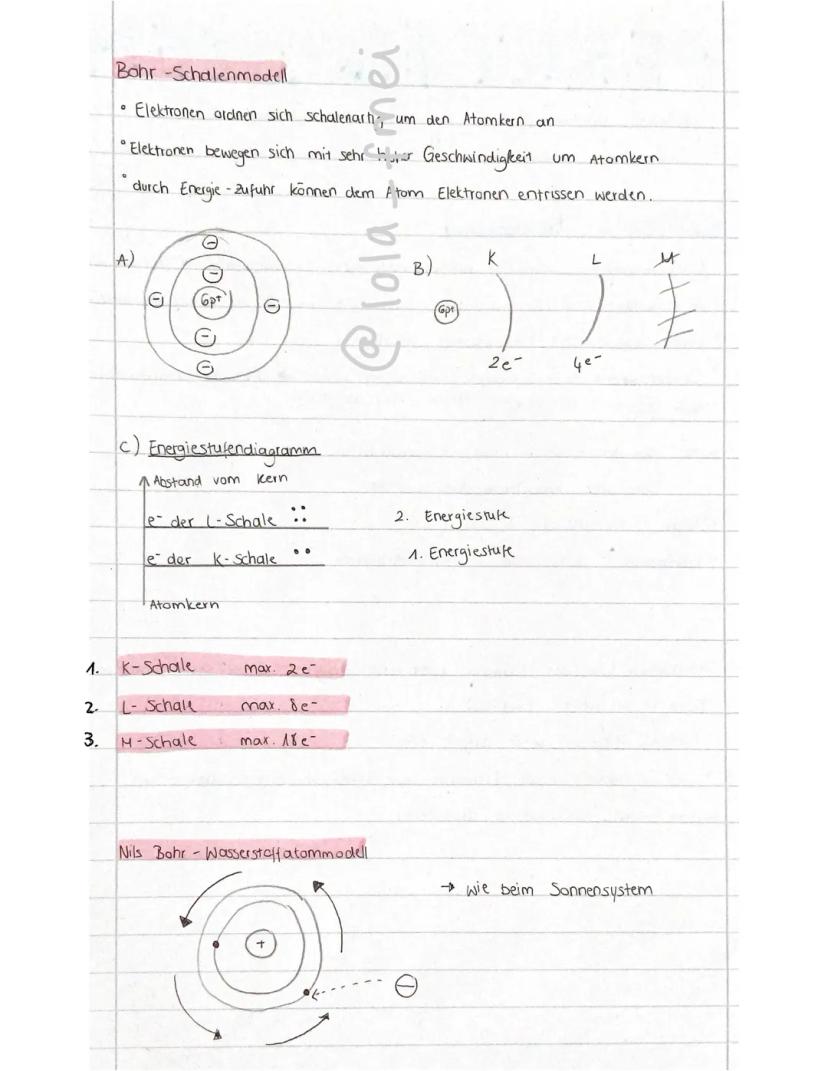 Bohr-Schalenmodell
° Elektronen ordnen sich schalenartig um den Atomkern an
° Elektronen bewegen sich mit sehr hoher Geschwindigkeit um Atomkern
° durch Energie-zufuhr können dem Atom Elektronen entrissen werden.
@lola_fmei
A)
6p+
B)
K L M
6p+
2e- 4e-
C) Energiestufendiagramm
Abstand vom Kern
e- der L-Schale 2. Energiestufe
e- der K-Schale 1. Energiestufe
Atomkern
1. K-Schale max. 2e-
2. L-Schale max. 8e-
3. M-Schale max. 18e-
Nils Bohr - Wasserstoffatommodell
→ wie beim Sonnensystem